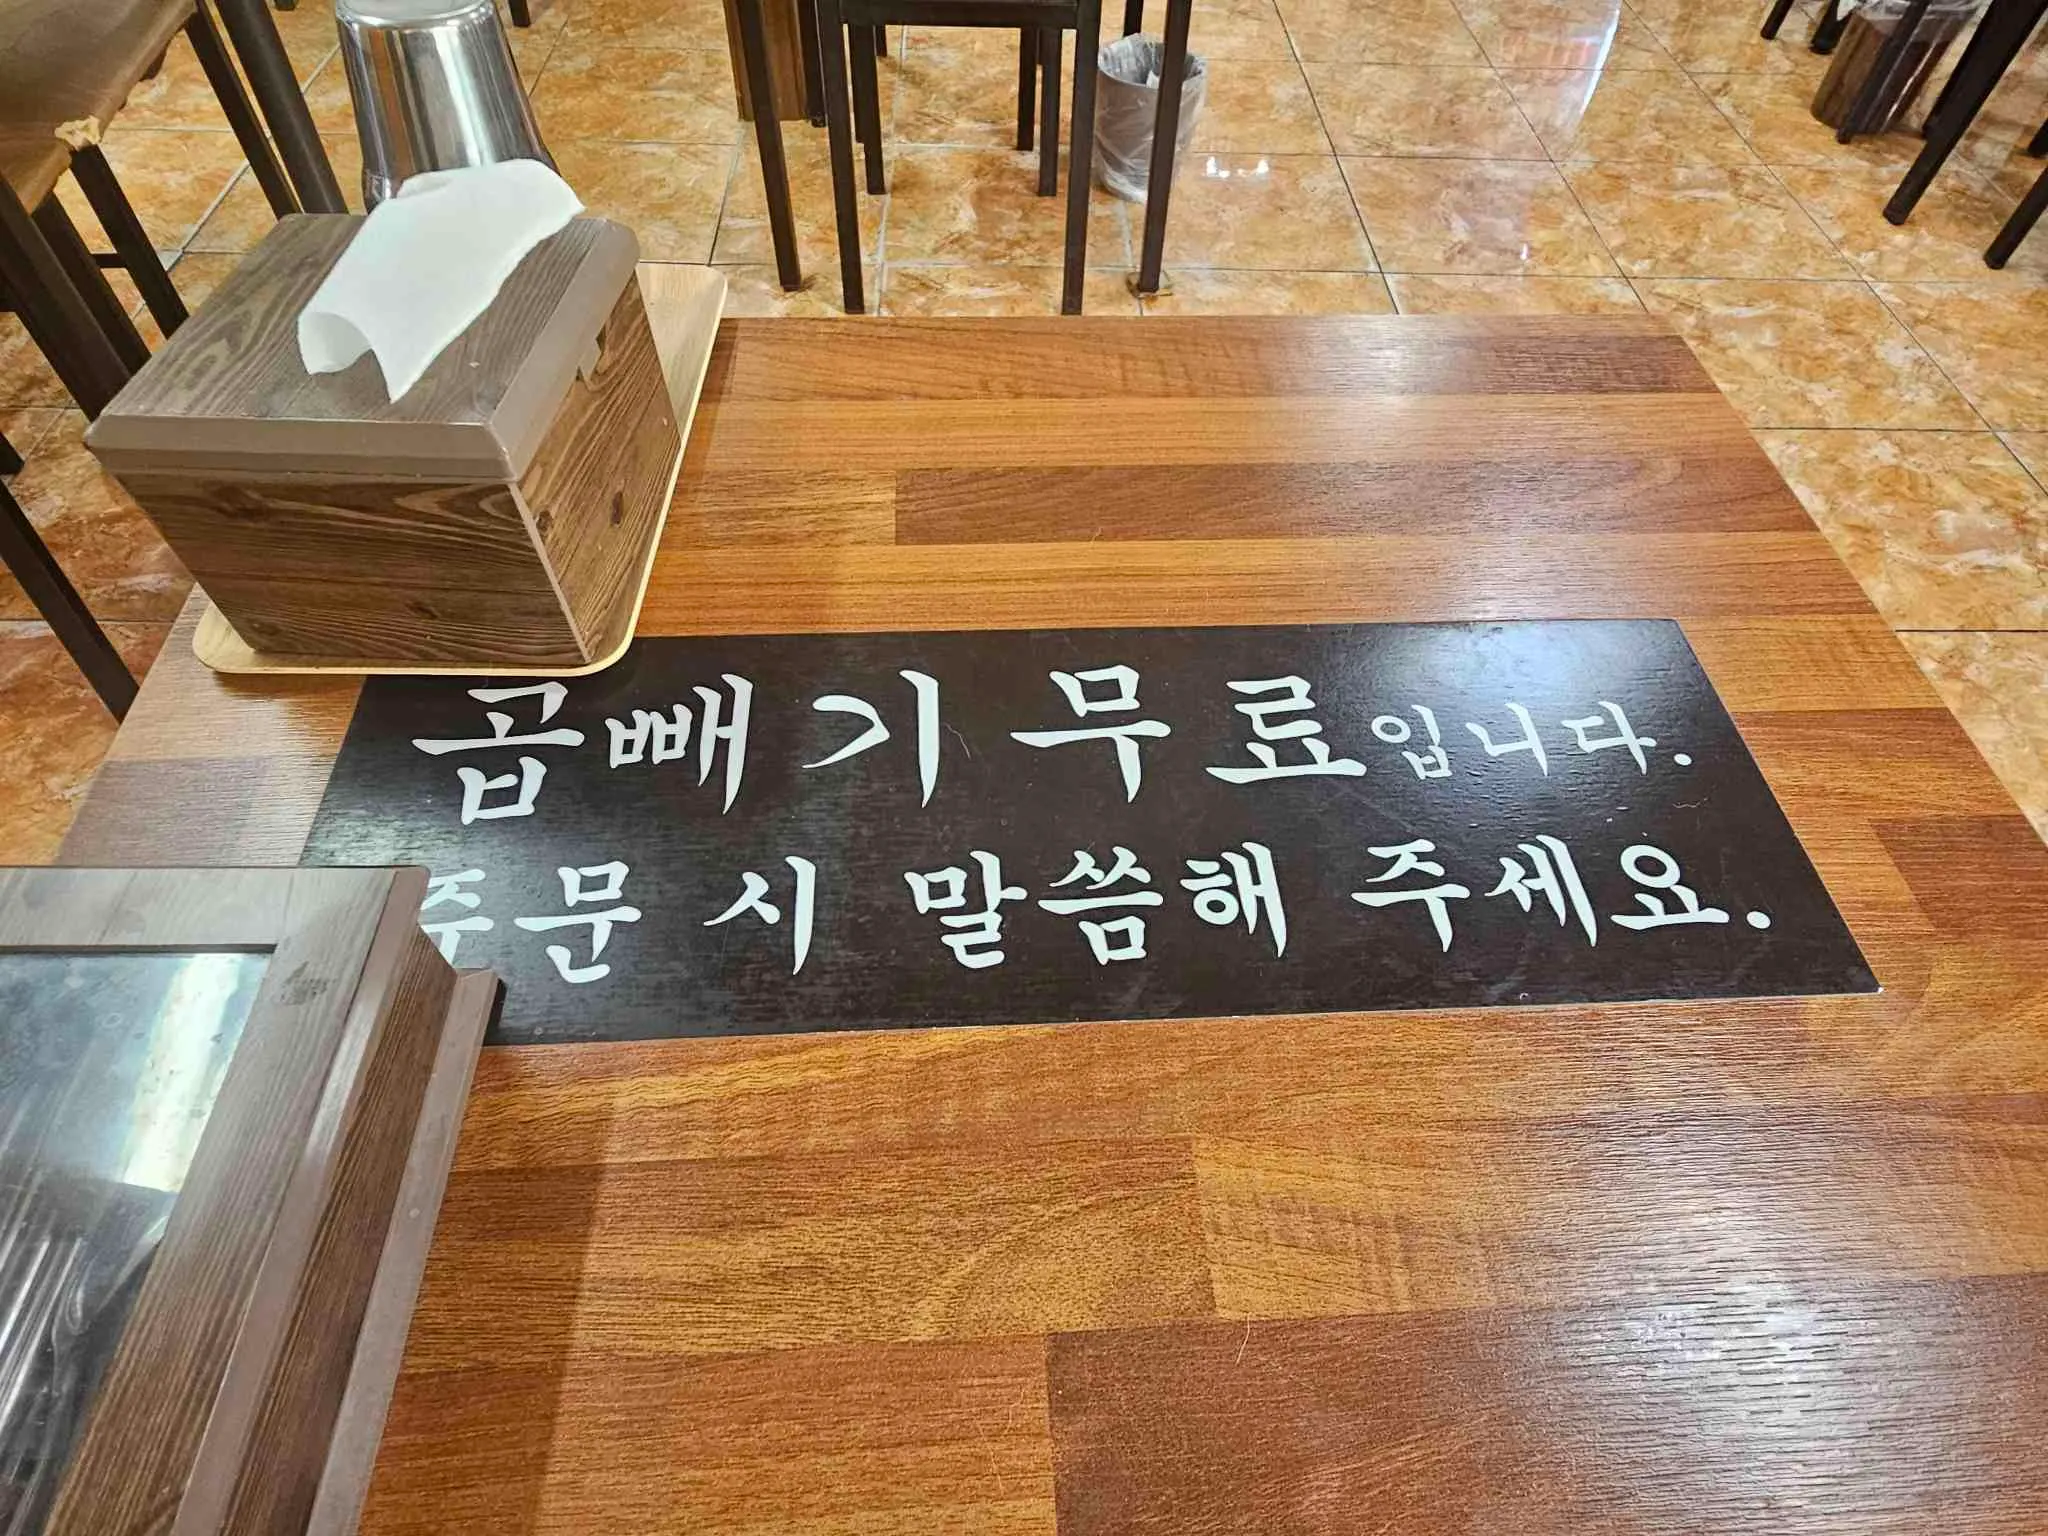 곱빼기 무료입니다.
주문 시 말씀해 주세요.